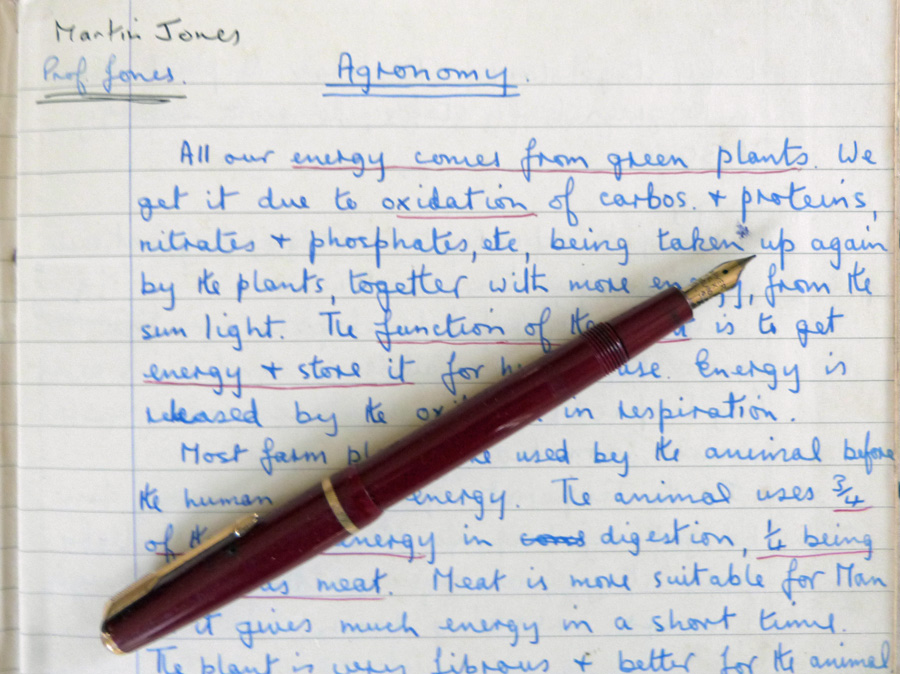 Martin Jones
Prof. Jones.
Agronomy.
All our energy comes from green plants. We
get it due to oxidation of carbos. + proteins,
nitrates + phosphates, etc, being taken up again
by the plants, together with more from the
sun light. The function of the is to get
energy + store it for use. Energy is
released by the in respiration.
Most farm used by the animal before
the human energy. The animal uses 3/4
of energy in digestion, 1/4 being
as meat. Meat is more suitable for Man
it gives much energy in a short time.
The plant is very fibrous + better for the animal